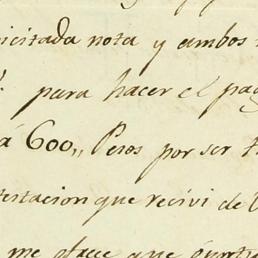 icitada nota y ambos
para hacer el pag
á 600,, Pesos por ser
testacion que recivi de
me place que